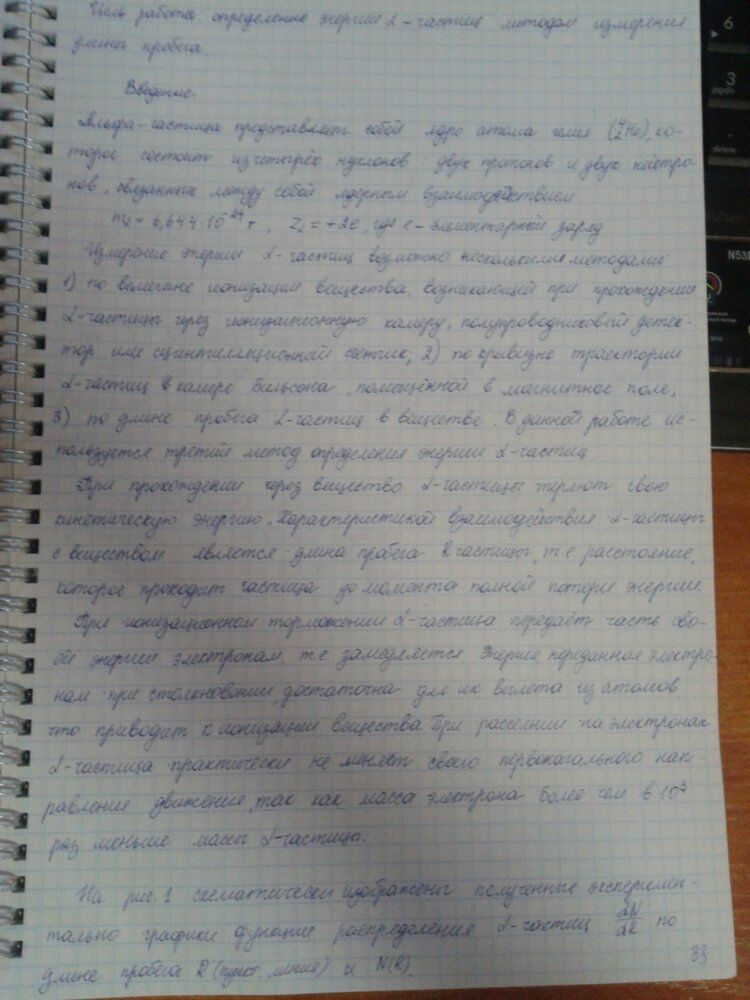 Цель работы: определение энергии α-частиц методом измерения
длины пробега
Введение.
Альфа-частица представляет собой ядро атома гелия (⁴₂He), ко-
торое состоит из четырёх нуклонов: двух протонов и двух нейтро-
нов, связанных между собой ядерным взаимодействием
mα = 6,644·10⁻²⁴ г, Zα = +2e, где e - элементарный заряд
Измерение энергии α-частиц возможно несколькими методами:
1) по величине ионизации вещества, возникающей при прохождении
α-частицы через ионизационную камеру, полупроводниковый детек-
тор или сцинтилляционный счетчик; 2) по кривизне траектории
α-частиц в камере Вильсона, помещённой в магнитное поле;
3) по длине пробега α-частиц в веществе. В данной работе ис-
пользуется третий метод определения энергии α-частиц.
При прохождении через вещество α-частицы теряют свою
кинетическую энергию. Характеристикой взаимодействия α-частицы
с веществом является длина пробега R частицы, т.е. расстояние,
которое проходит частица до момента полной потери энергии.
При ионизационном торможении α-частица передаёт часть сво-
ей энергии электронам, т.е. замедляется. Энергия, переданная электро-
нам при столкновении, достаточна для их вылета из атомов,
что приводит к ионизации вещества. При рассеянии на электронах
α-частица практически не меняет своего первоначального нап-
равления движения, так как масса электрона более чем в 10³
раз меньше массы α-частицы.
На рис. 1 схематически изображены полученные эксперимен-
тально графики функции распределения α-частиц dN/dR по
длине пробега R (пункт. линия) и N(R)
33
6
3
pgdn
delete
N53